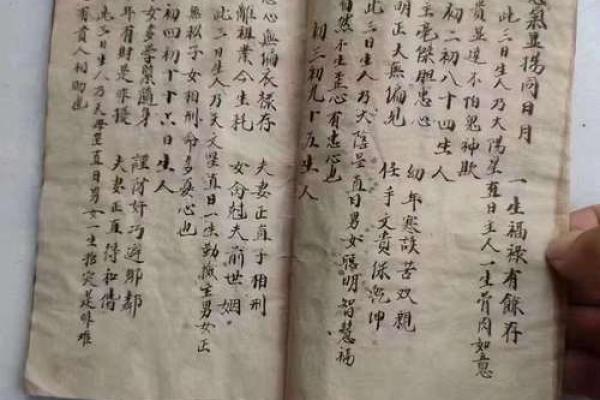 忠氣並揚同日月
一生福祿有餘存
此三日生人乃太陽星直日主人一生骨肉如
貴並達不怕鬼神欺
初二初八十四生人
主毫傑胆忠心
幼年寒談苦双親
明正大無偏
任手文貴保乾坤
此三日生人乃太陰星直日男女聰明智慧福
自然不生歪心有忠心也
初三初九十五生人
忠心無偏衣祿存
夫妻正直子相刑
離祖業今生托
女命尅夫前世姻
此三日生人乃天文星直日一生勤儉主男女正
無私子女相刑命多忠心也
初四初十十六日生人
女多學業隨身
謹防奸巧避鄉鄰
年有財是非提
夫妻正直得和偕
此三日生人乃天母星直日男女一生指突是非难
有貴人相助也